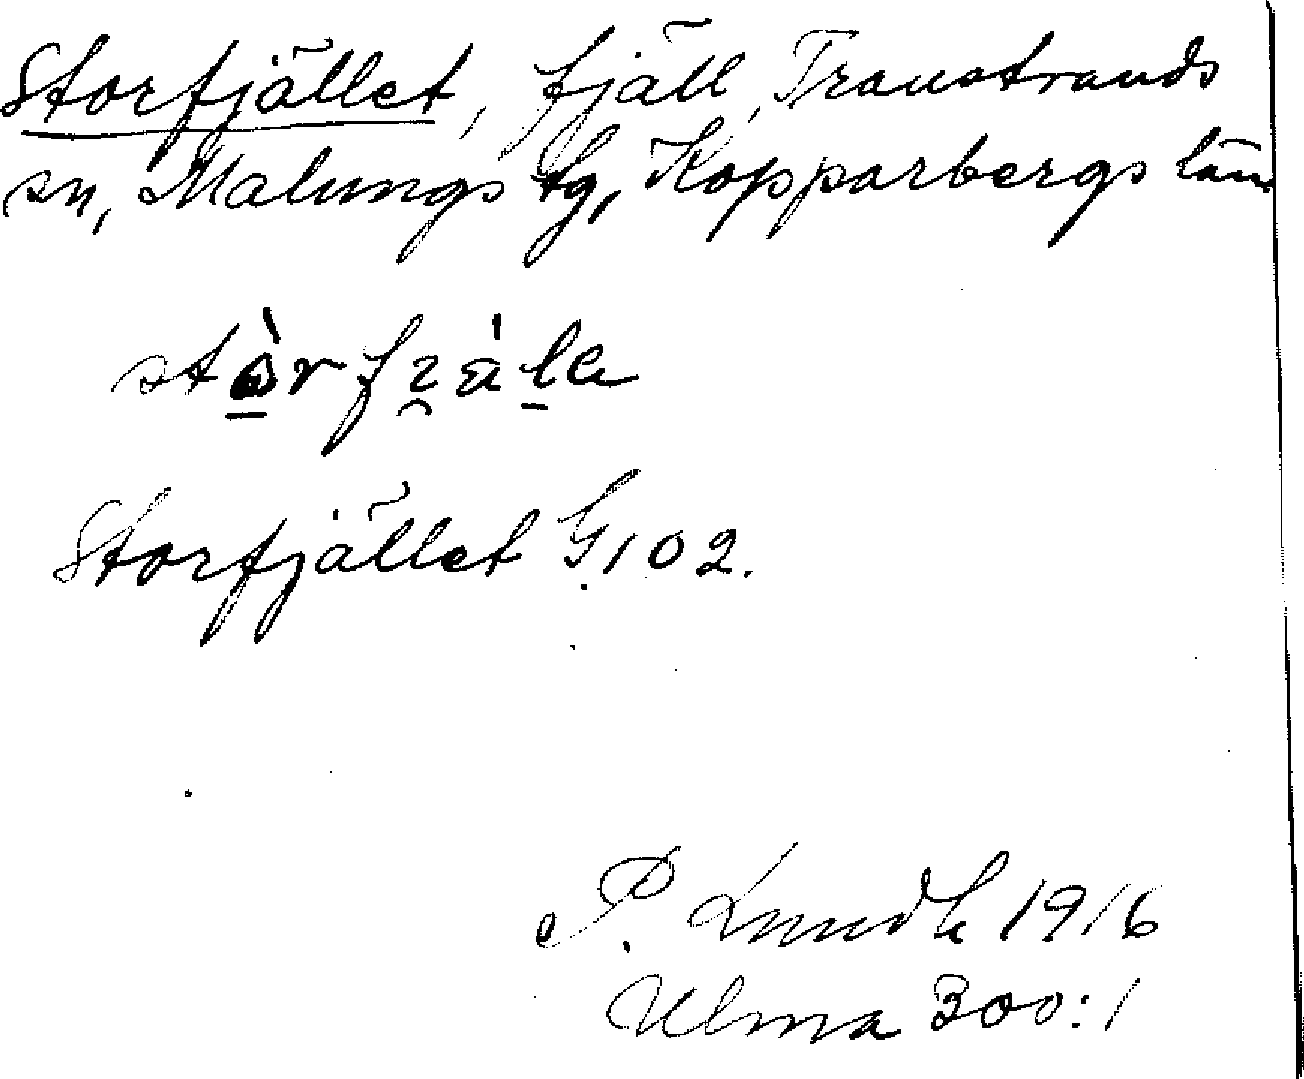 Storfjället, fjäll, Transtrands
sn, Malungs tg, Kopparbergs län
Storfjället G. 102.
P. Lundh 1916
Ulma 300:1